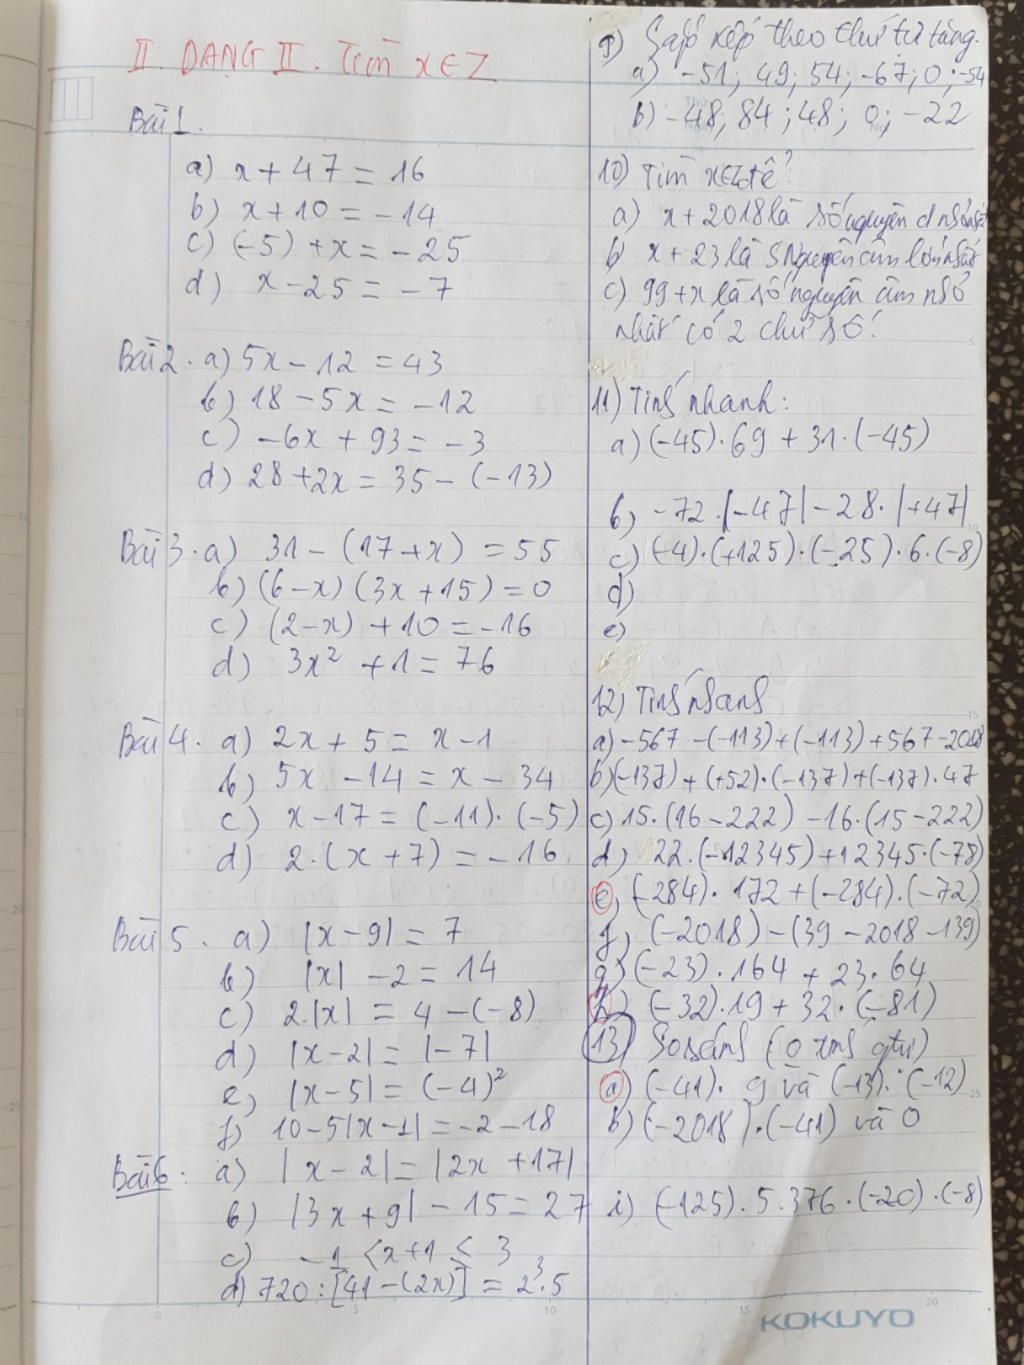 II. DẠNG II. Tìm x ∈ Z
Bài 1.
a) x + 47 = 16
b) x + 10 = - 14
c) (-5) + x = - 25
d) x - 25 = - 7
Bài 2. a) 5x - 12 = 43
b) 18 - 5x = - 12
c) - 6x + 93 = - 3
d) 28 + 2x = 35 - (-13)
Bài 3. a) 31 - (17 + x) = 55
b) (6 - x) (3x + 15) = 0
c) (2 - x) + 10 = - 16
d) 3x² + 1 = 76
Bài 4. a) 2x + 5 = x - 1
b) 5x - 14 = x - 34
c) x - 17 = (-11). (-5)
d) 2.(x + 7) = - 16
Bài 5. a) |x - 9| = 7
b) |x| - 2 = 14
c) 2.|x| = 4 - (-8)
d) |x - 2| = |-7|
e) |x - 5| = (-4)²
f) 10 - 5|x - 1| = - 2 - 18
Bài 6: a) |x - 2| = |2x + 17|
b) |3x + 9| - 15 = 27
c) - 1 < x + 1 < 3
d) 720 : [41 - (2x)] = 2³.5
9) Sắp xếp theo thứ tự tăng.
a) - 51; 49; 54; - 67; 0; - 54
b) - 48; 84; 48; 0; - 22
10) Tìm x∈Z để?
a) x + 2018 là số nguyên
b) x + 23 là nguyên âm lớn nhất
c) 99 + x là số nguyên âm nhỏ
nhất có 2 chữ số.
11) Tính nhanh:
a) (-45). 69 + 31. (-45)
b) - 72. |-47| - 28. |+47|
c) (-4).(+125).(-25).6.(-8)
d)
e)
12) Tính nhanh
a) - 567 - (-113) + (-113) + 567 - 2018
b) (-137) + (+52).(-137) + (-137).47
c) 15.(16 - 222) - 16.(15 - 222)
d) 22.(-12345) + 12345.(-78)
e) (-284). 172 + (-284).(-72)
f) (-2018) - (39 - 2018 - 139)
g) (-23). 164 + 23. 64
h) (-32).19 + 32. (-81)
13) So sánh (0 tính gtrị)
a) (-41). 9 và (-13). (-12)
b) (-2018).(-41) và 0
i) (-125). 5. 376. (-20). (-8)
KOKUYO